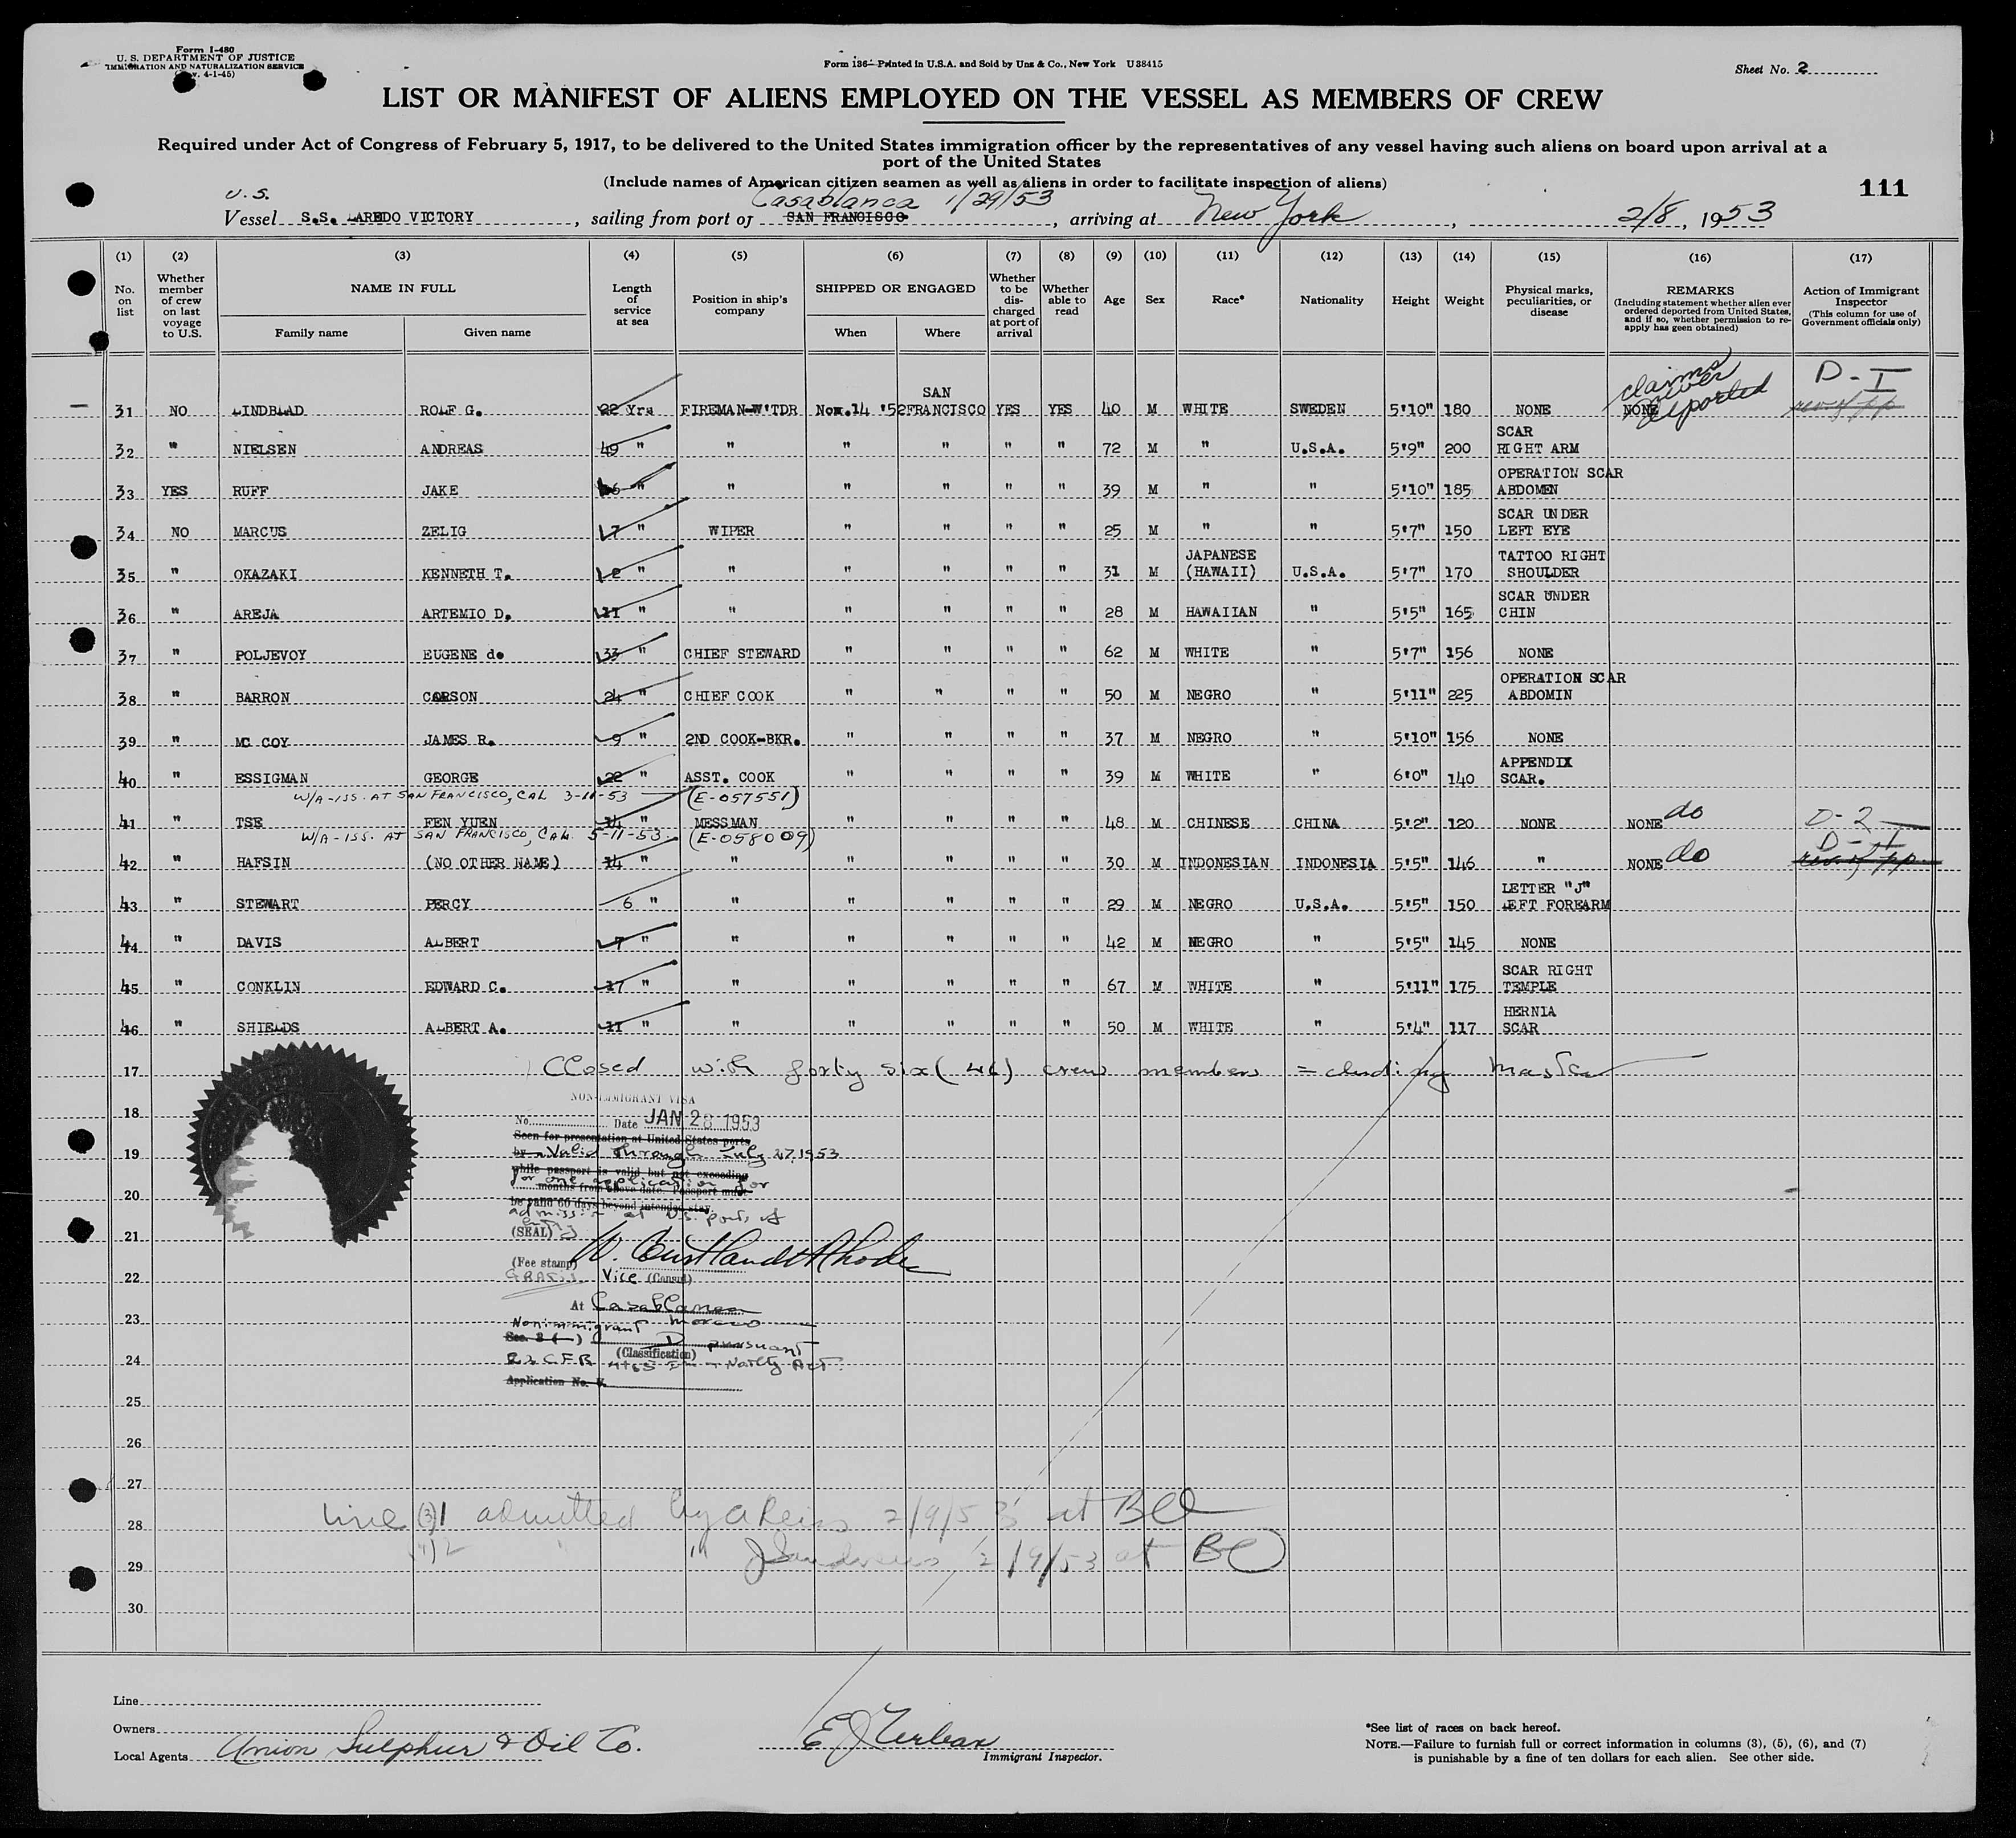 Form I-480
U. S. DEPARTMENT OF JUSTICE
IMMIGRATION AND NATURALIZATION SERVICE
4-1-45)
Form 136— Printed in U.S.A. and Sold by Unz & Co., New York U 38415
Sheet No. 2
LIST OR MANIFEST OF ALIENS EMPLOYED ON THE VESSEL AS MEMBERS OF CREW
Required under Act of Congress of February 5, 1917, to be delivered to the United States immigration officer by the representatives of any vessel having such aliens on board upon arrival at a
port of the United States
(Include names of American citizen seamen as well as aliens in order to facilitate inspection of aliens)
111
U.S. Casablanca 1/29/53
Vessel S.S. LAREDO VICTORY, sailing from port of SAN FRANCISCO, arriving at New York, 2/8, 1953
(1) No. on list
(2) Whether member of crew on last voyage to U.S.
(3) NAME IN FULL Family name Given name
(4) Length of service at sea
(5) Position in ship's company
(6) SHIPPED OR ENGAGED When Where
(7) Whether to be discharged at port of arrival
(8) Whether able to read
(9) Age
(10) Sex
(11) Race*
(12) Nationality
(13) Height
(14) Weight
(15) Physical marks, peculiarities, or disease
(16) REMARKS (Including statement whether alien ever ordered deported from United States, and if so, whether permission to re-apply has geen obtained)
(17) Action of Immigrant Inspector (This column for use of Government officials only)
31 NO LINDBLAD ROLF G. 22 Yrs FIREMAN-W'TDR Nov.14 '52 SAN FRANCISCO YES YES 40 M WHITE SWEDEN 5'10" 180 NONE NONE claims never deported D-I
32 " NIELSEN ANDREAS 49 " " " " " " 72 M " U.S.A. 5'9" 200 SCAR RIGHT ARM
33 YES RUFF JAKE " " " " " " 39 M " " 5'10" 185 OPERATION SCAR ABDOMEN
34 NO MARCUS ZELIG 7 " WIPER " " " " 25 M " " 5'7" 150 SCAR UNDER LEFT EYE
35 " OKAZAKI KENNETH T. " " " " " " 31 M JAPANESE (HAWAII) U.S.A. 5'7" 170 TATTOO RIGHT SHOULDER
36 " AREJA ARTEMIO D. 11 " " " " " " 28 M HAWAIIAN " 5'5" 165 SCAR UNDER CHIN
37 " POLJEVOY EUGENE de 33 " CHIEF STEWARD " " " " 62 M WHITE " 5'7" 156 NONE
38 " BARRON CARSON 24 " CHIEF COOK " " " " 50 M NEGRO " 5'11" 225 OPERATION SCAR ABDOMIN
39 " MC COY JAMES R. 9 " 2ND COOK-BKR. " " " " 37 M NEGRO " 5'10" 156 NONE
40 " ESSIGMAN GEORGE 22 " ASST. COOK " " " " 39 M WHITE " 6'0" 140 APPENDIX SCAR.
W/A-ISS. AT SAN FRANCISCO, CAL 3-11-53 (E-057551)
41 " TSE FEN YUEN 14 " MESSMAN " " " " 48 M CHINESE CHINA 5'2" 120 NONE NONE do D-2
W/A-ISS. AT SAN FRANCISCO, CAL. 5-11-53. (E-058009)
42 " HAFSIN (NO OTHER NAME) 14 " " " " " " 30 M INDONESIAN INDONESIA 5'5" 146 " NONE do D-1
43 " STEWART PERCY 6 " " " " " " 29 M NEGRO U.S.A. 5'5" 150 LETTER "J" LEFT FOREARM
44 " DAVIS ALBERT 7 " " " " " " 42 M NEGRO " 5'5" 145 NONE
45 " CONKLIN EDWARD C. 17 " " " " " " 67 M WHITE " 5'11" 175 SCAR RIGHT TEMPLE
46 " SHIELDS ALBERT A. 11 " " " " " " 50 M WHITE " 5'4" 117 HERNIA SCAR
17 Closed with forty six (46) crew members including Master
NON-IMMIGRANT VISA
18 No. Date JAN 28 1953
Seen for presentation at United States ports
19 by Valid through July 27, 1953
while passport is valid but not exceeding
for one application for
20 months from above date. Passport must
be valid 60 days beyond intended stay.
admission at U.S. ports of
entry
21 (SEAL)
(Fee stamp)
22 GRATIS Vice (Consul)
At Casablanca
23 Nonimmigrant Morocco
Sec. 3 ( ) D pursuant
24 (Classification)
22 CFR Act
Application No. V.
25
26
27
28 Line (3)1 admitted by 2/9/53 at
29 " 2/9/53 at
30
Line
Owners
Local Agents Union Sulphur & Oil Co.
Immigrant Inspector.
*See list of races on back hereof.
NOTE.—Failure to furnish full or correct information in columns (3), (5), (6), and (7)
is punishable by a fine of ten dollars for each alien. See other side.